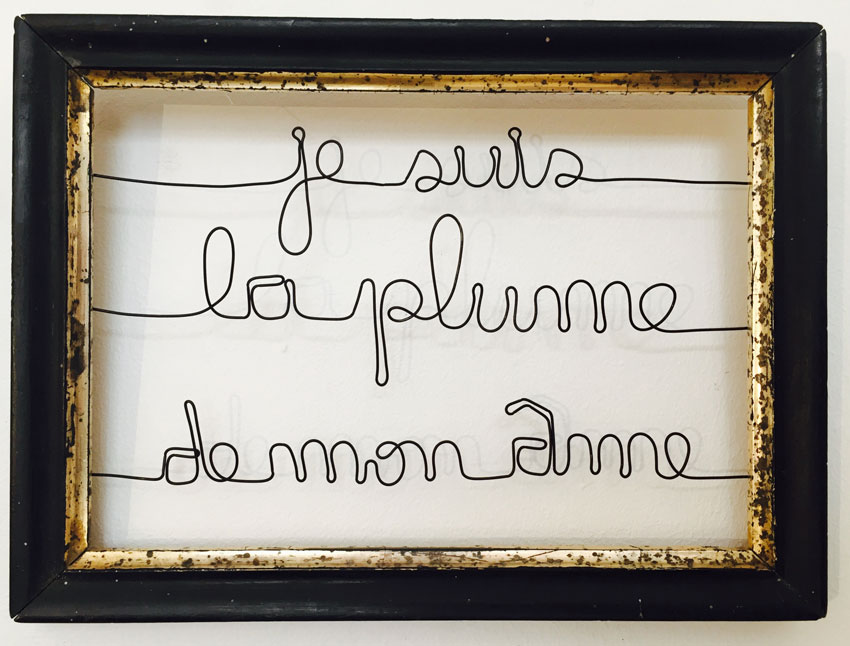 je suis
la plume
de mon âme